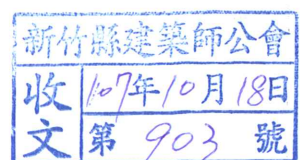 新竹縣建築師公會
收文
107年10月18日
第903號